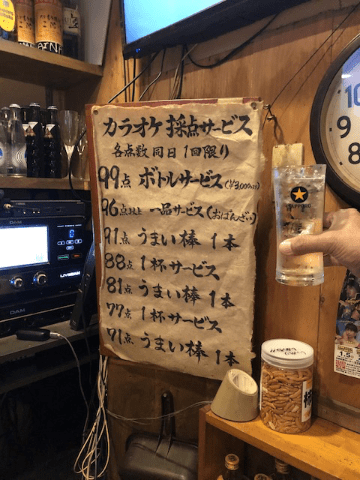 カラオケ採点サービス
各点数同日1回限り
99点 ボトルサービス(¥3,000(税込)
96点以上 一品サービス(おばんざい)
91点 うまい棒 1本
88点 1杯サービス
81点 うまい棒 1本
77点 1杯サービス
71点 うまい棒 1本
LIVEDAM
DAM
10
9
8
7